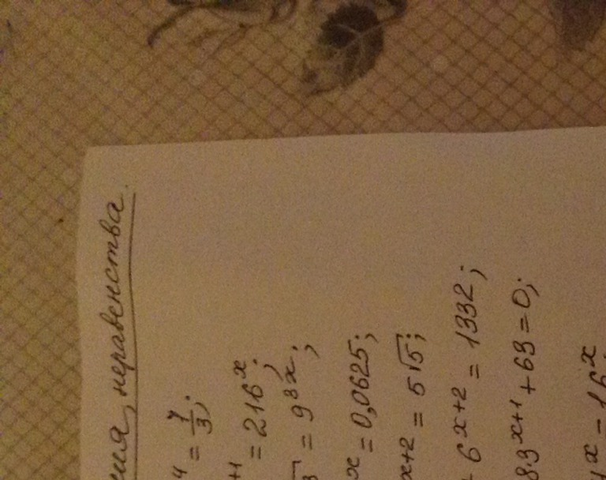 неравенства.
= 1/3;
+1 = 216^x;
= 9^{3x};
x = 0,0625;
x+2 = 5√5;
6^{x+2} = 1332;
8·3^{x+1} + 63 = 0;
4^x - 16^x